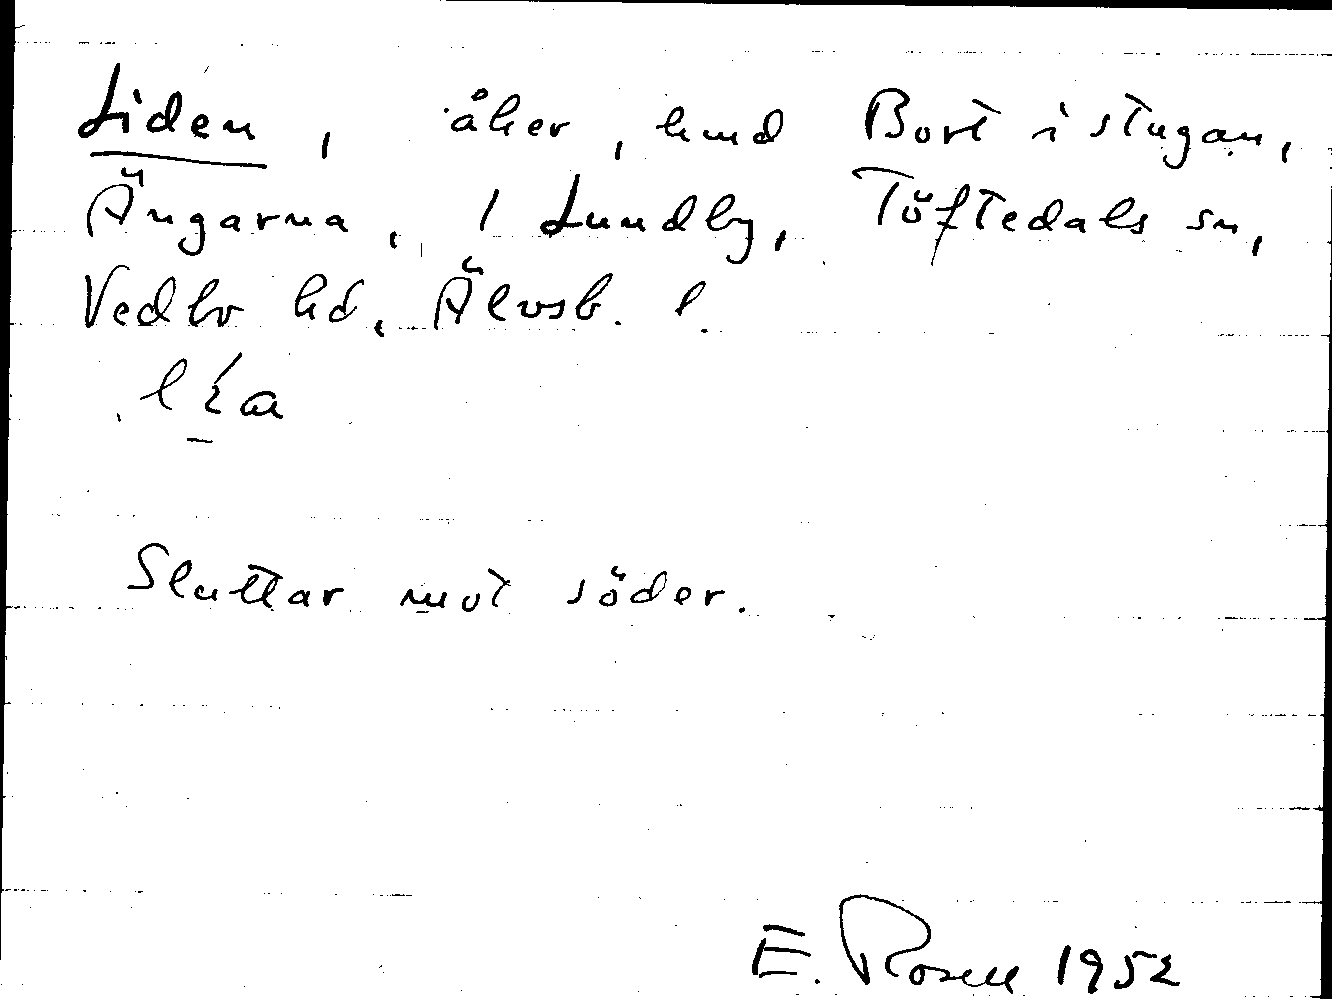 Liden, åker, hmd Bort i stugan,
Ängarna, 1 Lundby, Töftedals sn,
Vedbo hd, Älvsb. l.
Sluttar mot söder.
E. Rosell 1952